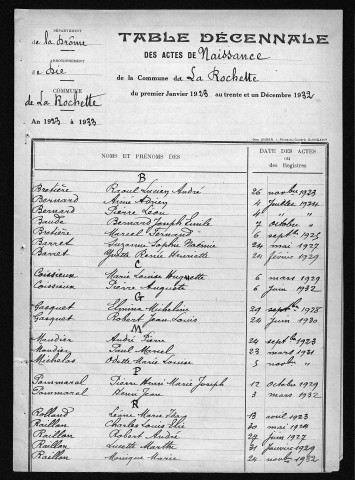 DÉPARTEMENT
de la Drôme
ARRONDISSEMENT
de Die
COMMUNE
de La Rochette
An 1923 à 1933
TABLE DÉCENNALE
DES ACTES DE Naissance
de la Commune de La Rochette
du premier Janvier 1923 au trente et un Décembre 1932
NOMS ET PRÉNOMS DES
DATE DES ACTES
ou
des Registres
B
Bretière Raoul Lucien André 26 novbre 1923
Bernard Aimé Adrien 4 Juillet 1924
Bernard Pierre Léon 4 " "
Baude Bernard Joseph Emile 7 octobre "
Bretière Marcel Fernand 6 septbre 1925
Barret Suzanne Sophie Noémie 24 mai 1927
Barret Odette Renée Henriette 24 février 1929
C
Coissieux Marie Louise Huguette 6 mars 1929
Coissieux Pierre Auguste 6 juin 1932
G
Gasquet Micheline 29 septbre 1928
Gasquet Robert Jean Louis 24 juin 1930
M
André Pierre 24 septbre 1923
Paul Marcel 23 mars 1931
Michelas Odette Marie Louise 5 novbre "
P
Pommaral Pierre Henri Marie Joseph 12 octobre 1929
Pommaral Henri Jean 3 mars 1932
R
Rolland Marie 13 avril 1923
Raillon Charles Louis Elie 30 mai 1924
Raillon Robert André 27 juin 1927
Raillon Lucette Marthe 31 Janvier 1929
Raillon Monique Marie 24 novbre 1932